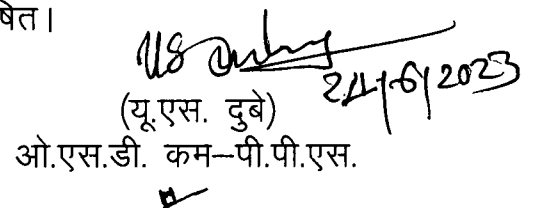 षित।
US Dubey
24/6/2023
(यू.एस. दुबे)
ओ.एस.डी. कम–पी.पी.एस.